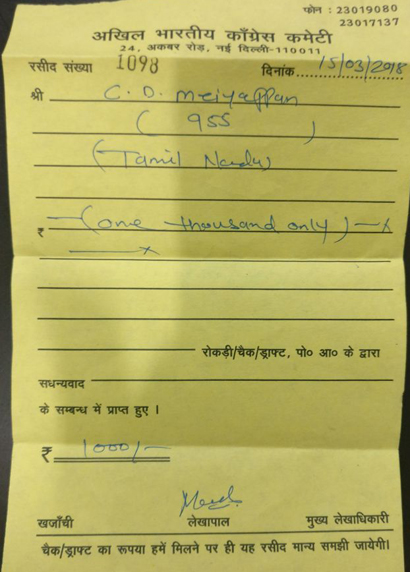 फोन : 23019080
23017137
अखिल भारतीय काँग्रेस कमेटी
24, अकबर रोड़, नई दिल्ली-110011
रसीद संख्या 1098 दिनांक 15/03/2018
श्री C. D. Meiyappan
( 955 )
(Tamil Nadu)
₹ (one thousand only) x
x
रोकड़ी/चैक/ड्राफ्ट, पो० आ० के द्वारा
सधन्यवाद
के सम्बन्ध में प्राप्त हुए ।
₹ 1000/-
खजाँची लेखापाल मुख्य लेखाधिकारी
चैक/ड्राफ्ट का रूपया हमें मिलने पर ही यह रसीद मान्य समझी जायेगी।